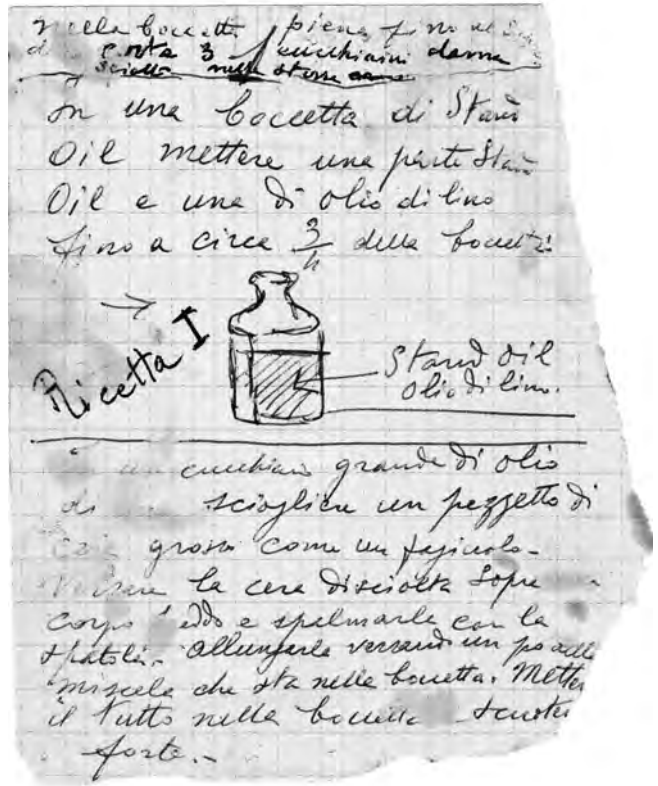 nella boccetta piena fino al
3 cucchiaini
nella stessa
In una boccetta di Stand
Oil mettere una parte Stand
Oil e una di olio di lino
fino a circa 3/4 della boccetta
→
Ricetta I
Stand oil
olio di lino.
un cucchiaio grande di olio
di sciogliere un pezzetto di
cera grosso come un fagiuolo-
Versare la cera disciolta sopra
corpo e spalmarla con la
spatola. Allungarla versando un po della
miscela che sta nella boccetta. Metter
il tutto nella boccetta scuoter
forte.-